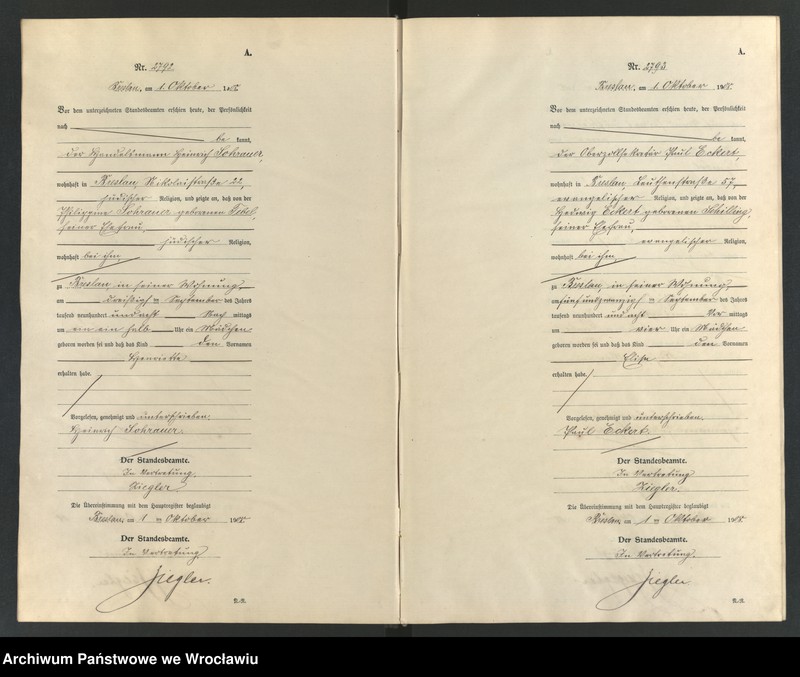 A.
Nr. 2792.
Breslau, am 1. Oktober 1908.
Vor dem unterzeichneten Standesbeamten erschien heute, der Persönlichkeit
nach
be kannt,
der Handelsmann Heinrich Sohrauer,
wohnhaft in Breslau, Nikolaistraße 22,
jüdischer Religion, und zeigte an, daß von der
Philippine Sohrauer geborenen
seiner Ehefrau,
jüdischer Religion,
wohnhaft bei ihm,
zu Breslau, in seiner Wohnung,
am dreißigsten September des Jahres
tausend neunhundert und acht Nach mittags
um ein ein halb Uhr ein Mädchen
geboren worden sei und daß das Kind den Vornamen
Henriette
erhalten habe.
Vorgelesen, genehmigt und unterschrieben.
Heinrich Sohrauer.
Der Standesbeamte.
In Vertretung
Ziegler.
Die Übereinstimmung mit dem Hauptregister beglaubigt
Breslau, am 1 ten Oktober 1908.
Der Standesbeamte.
In Vertretung
Ziegler.
A.
Nr. 2793.
Breslau, am 1. Oktober 1908.
Vor dem unterzeichneten Standesbeamten erschien heute, der Persönlichkeit
nach
be kannt,
der Oberzollsekretär Paul Eckert,
wohnhaft in Breslau, Leuthenstraße 57,
evangelischer Religion, und zeigte an, daß von der
Hedwig Eckert geborenen Schilling,
seiner Ehefrau,
evangelischer Religion,
wohnhaft bei ihm,
zu Breslau, in seiner Wohnung,
am fünfundzwanzig ten September des Jahres
tausend neunhundert und acht Vor mittags
um vier Uhr ein Mädchen
geboren worden sei und daß das Kind den Vornamen
Elise
erhalten habe.
Vorgelesen, genehmigt und unterschrieben.
Paul Eckert.
Der Standesbeamte.
In Vertretung
Ziegler.
Die Übereinstimmung mit dem Hauptregister beglaubigt
Breslau, am 1 ten Oktober 1908.
Der Standesbeamte.
In Vertretung.
Ziegler.
Archiwum Państwowe we Wrocławiu